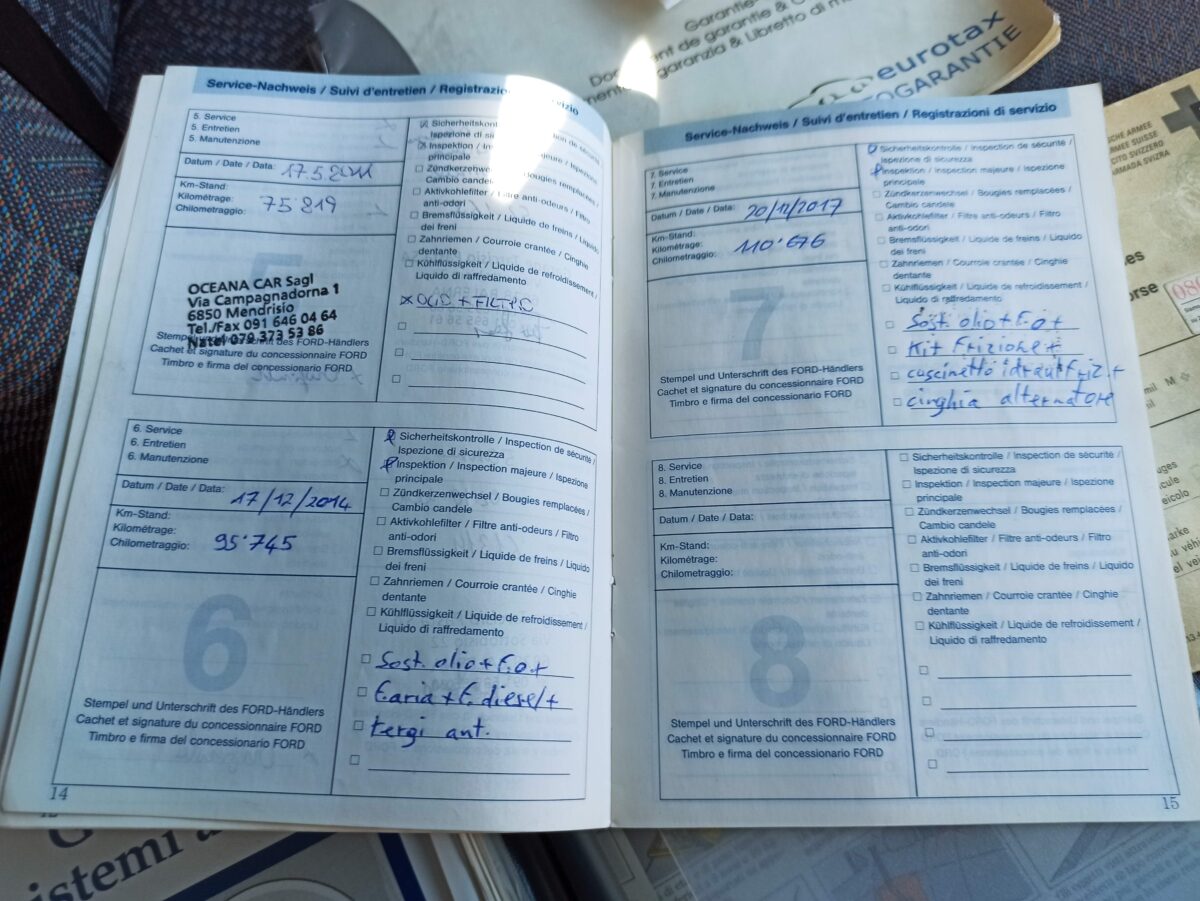 Garantie
Document de garantie &
garanzia & Libretto di
eurotax
GARANTIE
Service-Nachweis / Suivi d'entretien / Registrazioni servizio
5. Service
5. Entretien
5. Manutenzione
Datum / Date / Data: 17.5.2011
Km-Stand:
Kilométrage: 75'819
Chilometraggio:
5
OCEANA CAR Sagl
Via Campagnadorna 1
6850 Mendrisio
Tel./Fax 091 646 04 64
Natel 079 373 53 86
Stempel und Unterschrift des FORD-Händlers
Cachet et signature du concessionnaire FORD
Timbro e firma del concessionario FORD
Sicherheitskont tion de sécurité /
Ispezione di si
Inspektion / In jeure / Ispezione
principale
Zündkerzenwech Bougies remplacées /
Cambio candele
Aktivkohlefilter / Filtre anti-odeurs / Filtro
anti-odori
Bremsflüssigkeit / Liquide de freins / Liquido
dei freni
Zahnriemen / Courroie crantée / Cinghie
dentante
Kühlflüssigkeit / Liquide de refroidissement /
Liquido di raffredamento
OLIO + FILTRO
6. Service
6. Entretien
6. Manutenzione
Datum / Date / Data: 17/12/2014
Km-Stand:
Kilométrage:
Chilometraggio: 95'745
6
Stempel und Unterschrift des FORD-Händlers
Cachet et signature du concessionnaire FORD
Timbro e firma del concessionario FORD
Sicherheitskontrolle / Inspection de sécurité /
Ispezione di sicurezza
Inspektion / Inspection majeure / Ispezione
principale
Zündkerzenwechsel / Bougies remplacées /
Cambio candele
Aktivkohlefilter / Filtre anti-odeurs / Filtro
anti-odori
Bremsflüssigkeit / Liquide de freins / Liquido
dei freni
Zahnriemen / Courroie crantée / Cinghie
dentante
Kühlflüssigkeit / Liquide de refroidissement /
Liquido di raffredamento
Sost. olio + F.o +
F.aria + F. diesel +
tergi ant.
14
Service-Nachweis / Suivi d'entretien / Registrazioni di servizio
7. Service
7. Entretien
7. Manutenzione
Datum / Date / Data: 20/12/2017
Km-Stand:
Kilométrage: 110'676
Chilometraggio:
7
Stempel und Unterschrift des FORD-Händlers
Cachet et signature du concessionnaire FORD
Timbro e firma del concessionario FORD
Sicherheitskontrolle / Inspection de sécurité /
Ispezione di sicurezza
Inspektion / Inspection majeure / Ispezione
principale
Zündkerzenwechsel / Bougies remplacées /
Cambio candele
Aktivkohlefilter / Filtre anti-odeurs / Filtro
anti-odori
Bremsflüssigkeit / Liquide de freins / Liquido
dei freni
Zahnriemen / Courroie crantée / Cinghie
dentante
Kühlflüssigkeit / Liquide de refroidissement /
Liquido di raffredamento
Sost. olio + F.o +
Kit Frizione +
cuscinetto idraul Friz. +
cinghia alternatore
8. Service
8. Entretien
8. Manutenzione
Datum / Date / Data:
Km-Stand:
Kilométrage:
Chilometraggio:
8
Stempel und Unterschrift des FORD-Händlers
Cachet et signature du concessionnaire FORD
Timbro e firma del concessionario FORD
Sicherheitskontrolle / Inspection de sécurité /
Ispezione di sicurezza
Inspektion / Inspection majeure / Ispezione
principale
Zündkerzenwechsel / Bougies remplacées /
Cambio candele
Aktivkohlefilter / Filtre anti-odeurs / Filtro
anti-odori
Bremsflüssigkeit / Liquide de freins / Liquido
dei freni
Zahnriemen / Courroie crantée / Cinghie
dentante
Kühlflüssigkeit / Liquide de refroidissement /
Liquido di raffredamento
15
SCHE ARMEE
ARMEE SUISSE
CITO SVIZZERO
ARMADA SVIZRA